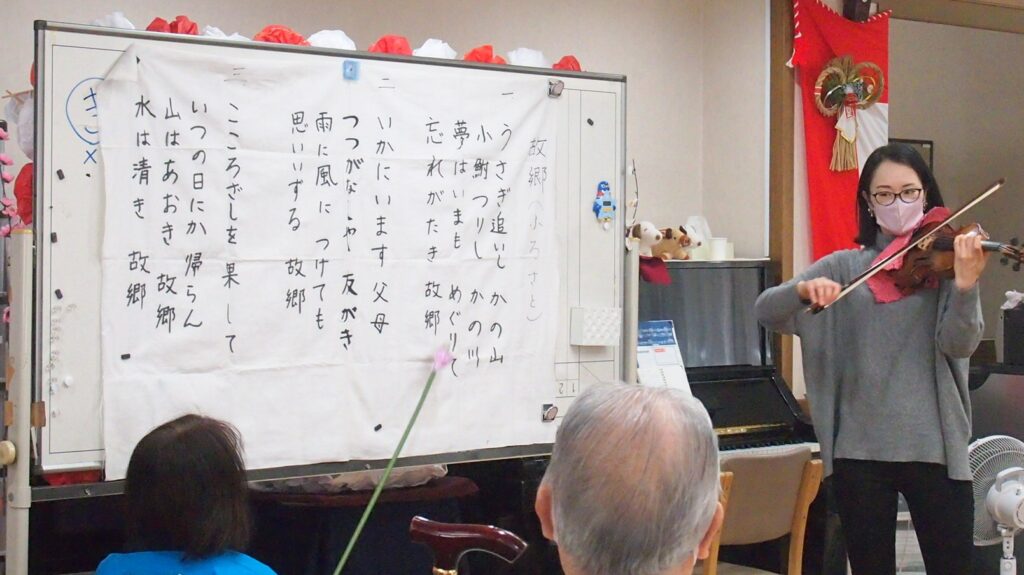 故郷(ふるさと)
一
うさぎ追いし かの山
小鮒つりし かの川
夢はいまも めぐりて
忘れがたき 故郷
二
いかにいます 父母
つつがなしや 友がき
雨に風に つけても
思いいずる 故郷
三
こころざしを 果して
いつの日にか 帰らん
山はあおき 故郷
水は清き 故郷